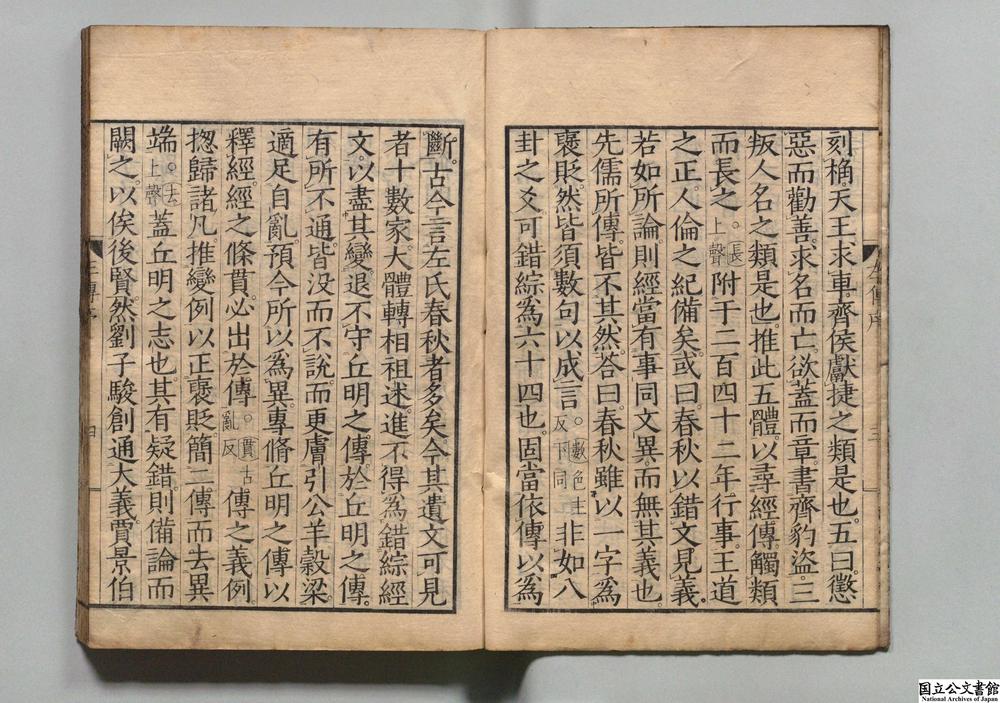 刻桷。天王求車。齊侯獻捷之類是也。五曰。懲
惡而勸善。求名而亡。欲蓋而章。書齊豹盜。三
叛人名之類是也。推此五體。以尋經傳。觸類
而長之。○長上聲附于二百四十二年行事。王道
之正。人倫之紀備矣。或曰。春秋以錯文見義。
若如所論。則經當有事同文異。而無其義也。
先儒所傳。皆不其然。答曰。春秋雖以一字為
褒貶。然皆須數句以成言。○數色主反下同非如八
卦之爻。可錯綜為六十四也。固當依傳以為
斷。古今言左氏春秋者多矣。今其遺文可見
者十數家。大體轉相祖述。進不得為錯綜經
文。以盡其變。退不守丘明之傳。於丘明之傳。
有所不通。皆没而不說。而更膚引公羊穀梁。
適足自亂。預今所以為異。專脩丘明之傳以
釋經。經之條貫。必出於傳○貫古亂反傳之義例
揔歸諸凡。推變例以正褒貶。簡二傳而去異
端○去上聲蓋丘明之志也。其有疑錯。則備論而
闕之。以俟後賢。然劉子駿創通大義。賈景伯
左傳序
三
左傳序
四
国立公文書館
National Archives of Japan